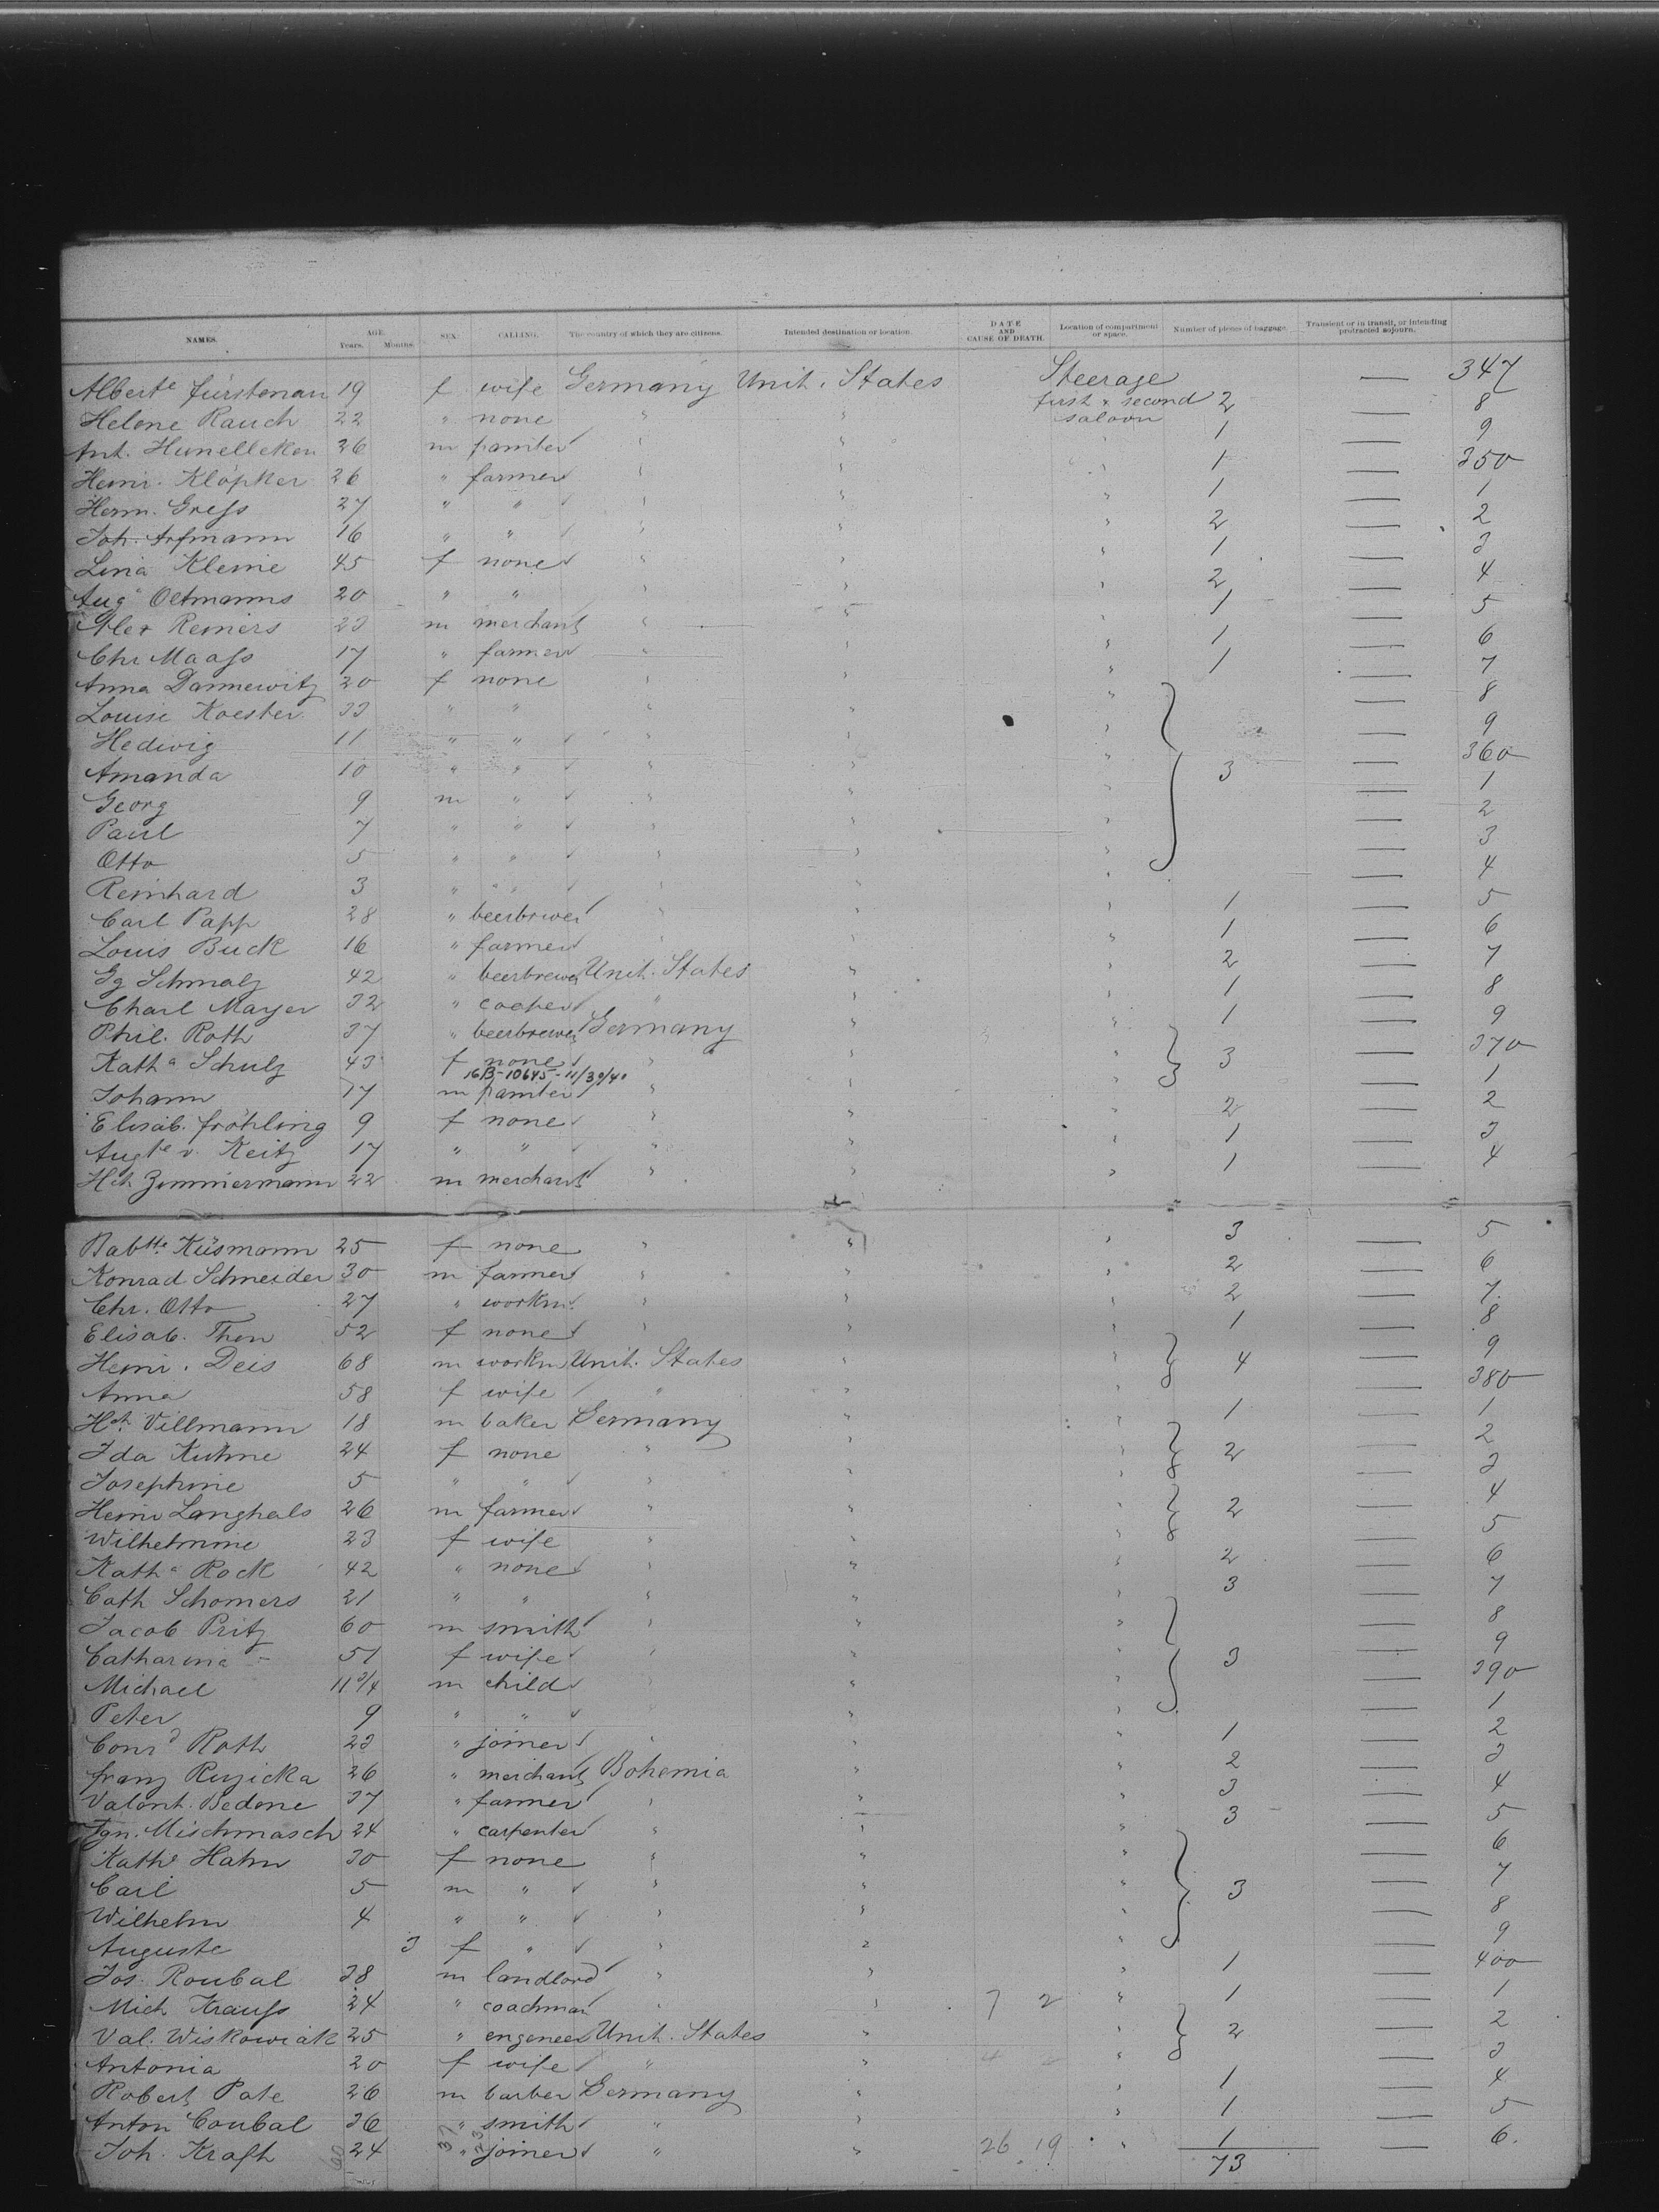 NAMES. AGE. SEX. CALLING. The country of which they are citizens. Intended destination or location. DATE AND CAUSE OF DEATH. Location of compartment or space. Number of pieces of baggage. Transient or in transit, or intending protracted sojourn.
Years. Months.
Alberte Fürstenau 19 f wife Germany Unit. States Steerage — 347
first & second saloon
Helene Rauch 22 " none " " 2 — 8
Ant. Hunelleken 26 m painter " " " 1 — 9
Heinr. Klöpker 26 " farmer " " " 1 — 350
Herm. Gress 27 " " " " " 1 — 1
Joh. Arfmann 16 " " " " " 2 — 2
Lina Kleine 45 f none " " " 1 — 3
Aug. Oetmanns 20 " " " " " 2 — 4
Alex Reiners 23 m merchant " " " 1 — 5
Chr Maass 17 " farmer " " " 1 — 6
Anna Dannewitz 20 f none " " " 1 — 7
Louise Koester 33 " " " " " — 8
Hedwig 11 " " " " " — 9
Amanda 10 " " " " " 3 — 360
Georg 9 m " " " " — 1
Paul 7 " " " " " — 2
Otto 5 " " " " " — 3
Reinhard 3 " " " " " — 4
Carl Papp 28 " beerbrewer " " " 1 — 5
Louis Buck 16 " farmer " " " 1 — 6
Gg Schmalz 42 " beerbrewer Unit. States " " 2 — 7
Charl Mayer 32 " cooper " " " 1 — 8
Phil. Roth 37 " beerbrewer Germany " " 1 — 9
Katha Schulz 43 f none " " " 3 — 370
16B-10645-11/30/40
Johann 17 m painter " " " — 1
Elisab. Fröhling 9 f none " " " 2 — 2
Augte v. Keitz 17 " " " " " 1 — 3
Hch Zimmermann 22 m merchant " " " 1 — 4
Babtte Küsmann 25 f none " " " 3 — 5
Konrad Schneider 30 m farmer " " " 2 — 6
Chr. Otto 27 " workm. " " " 2 — 7
Elisab. Then 52 f none " " " 1 — 8
Heinr. Deis 68 m workm Unit. States " " 4 — 9
Anna 58 f wife " " " — 380
Hch Villmann 18 m baker Germany " " 1 — 1
Ida Kuhne 24 f none " " " 2 — 2
Josephine 5 " " " " " — 3
Heinr Langhals 26 m farmer " " " 2 — 4
Wilhelmine 23 f wife " " " — 5
Katha Rock 42 " none " " " 2 — 6
Cath Schomers 21 " " " " " 3 — 7
Jacob Pritz 60 m smith " " " — 8
Catharina 51 f wife " " " 3 — 9
Michael 11 3/4 m child " " " — 390
Peter 9 " " " " " — 1
Conrd Roth 23 " joiner " " " 1 — 2
Franz Ruzicka 26 " merchant Bohemia " " 2 — 3
Valent. Bedene 37 " farmer " " " 3 — 4
Ign. Mischmasch 24 " carpenter " " " 3 — 5
Katha Hahn 30 f none " " " — 6
Carl 5 m " " " " 3 — 7
Wilhelm 4 " " " " " — 8
Auguste 3 f " " " " — 9
Jos. Roubal 38 m landlord " " " 1 — 400
Mich Krauss 24 " coachman " " 7 2 " 1 — 1
Val. Wiskowiak 25 " engeneer Unit. States " " 2 — 2
Antonia 20 f wife " " 4 2 " — 3
Robert Pate 26 m barber Germany " " 1 — 4
Anton Coubal 36 " smith " " " 1 — 5
Joh. Kraft 24 " joiner " " 26 19 " 1 — 6.
60 37 23 73